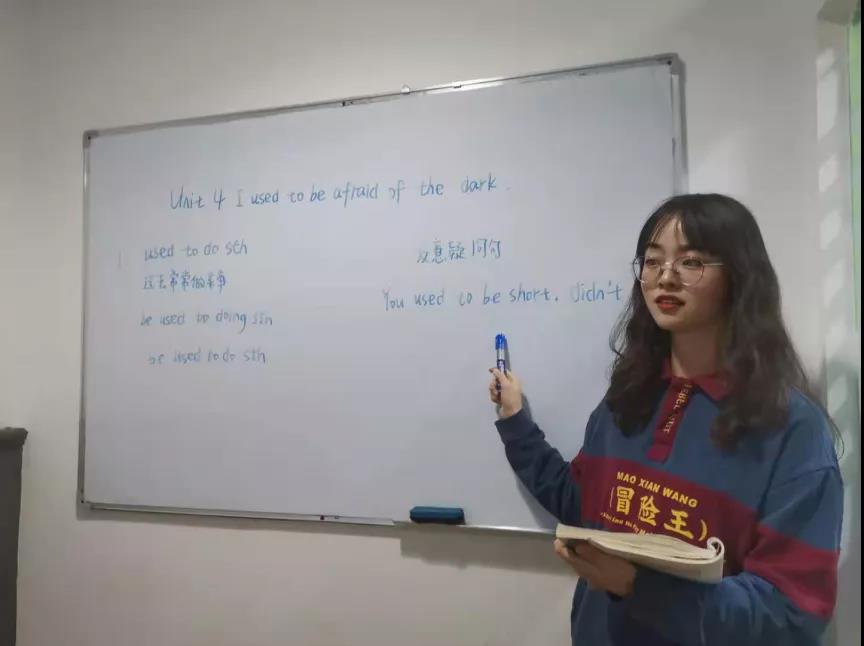 Unit 4 I used to be afraid of the dark.
used to do sth
过去常常做某事
be used to doing sth
be used to do sth
反意疑问句
You used to be short. didn't
MAO XIAN WANG
冒险王